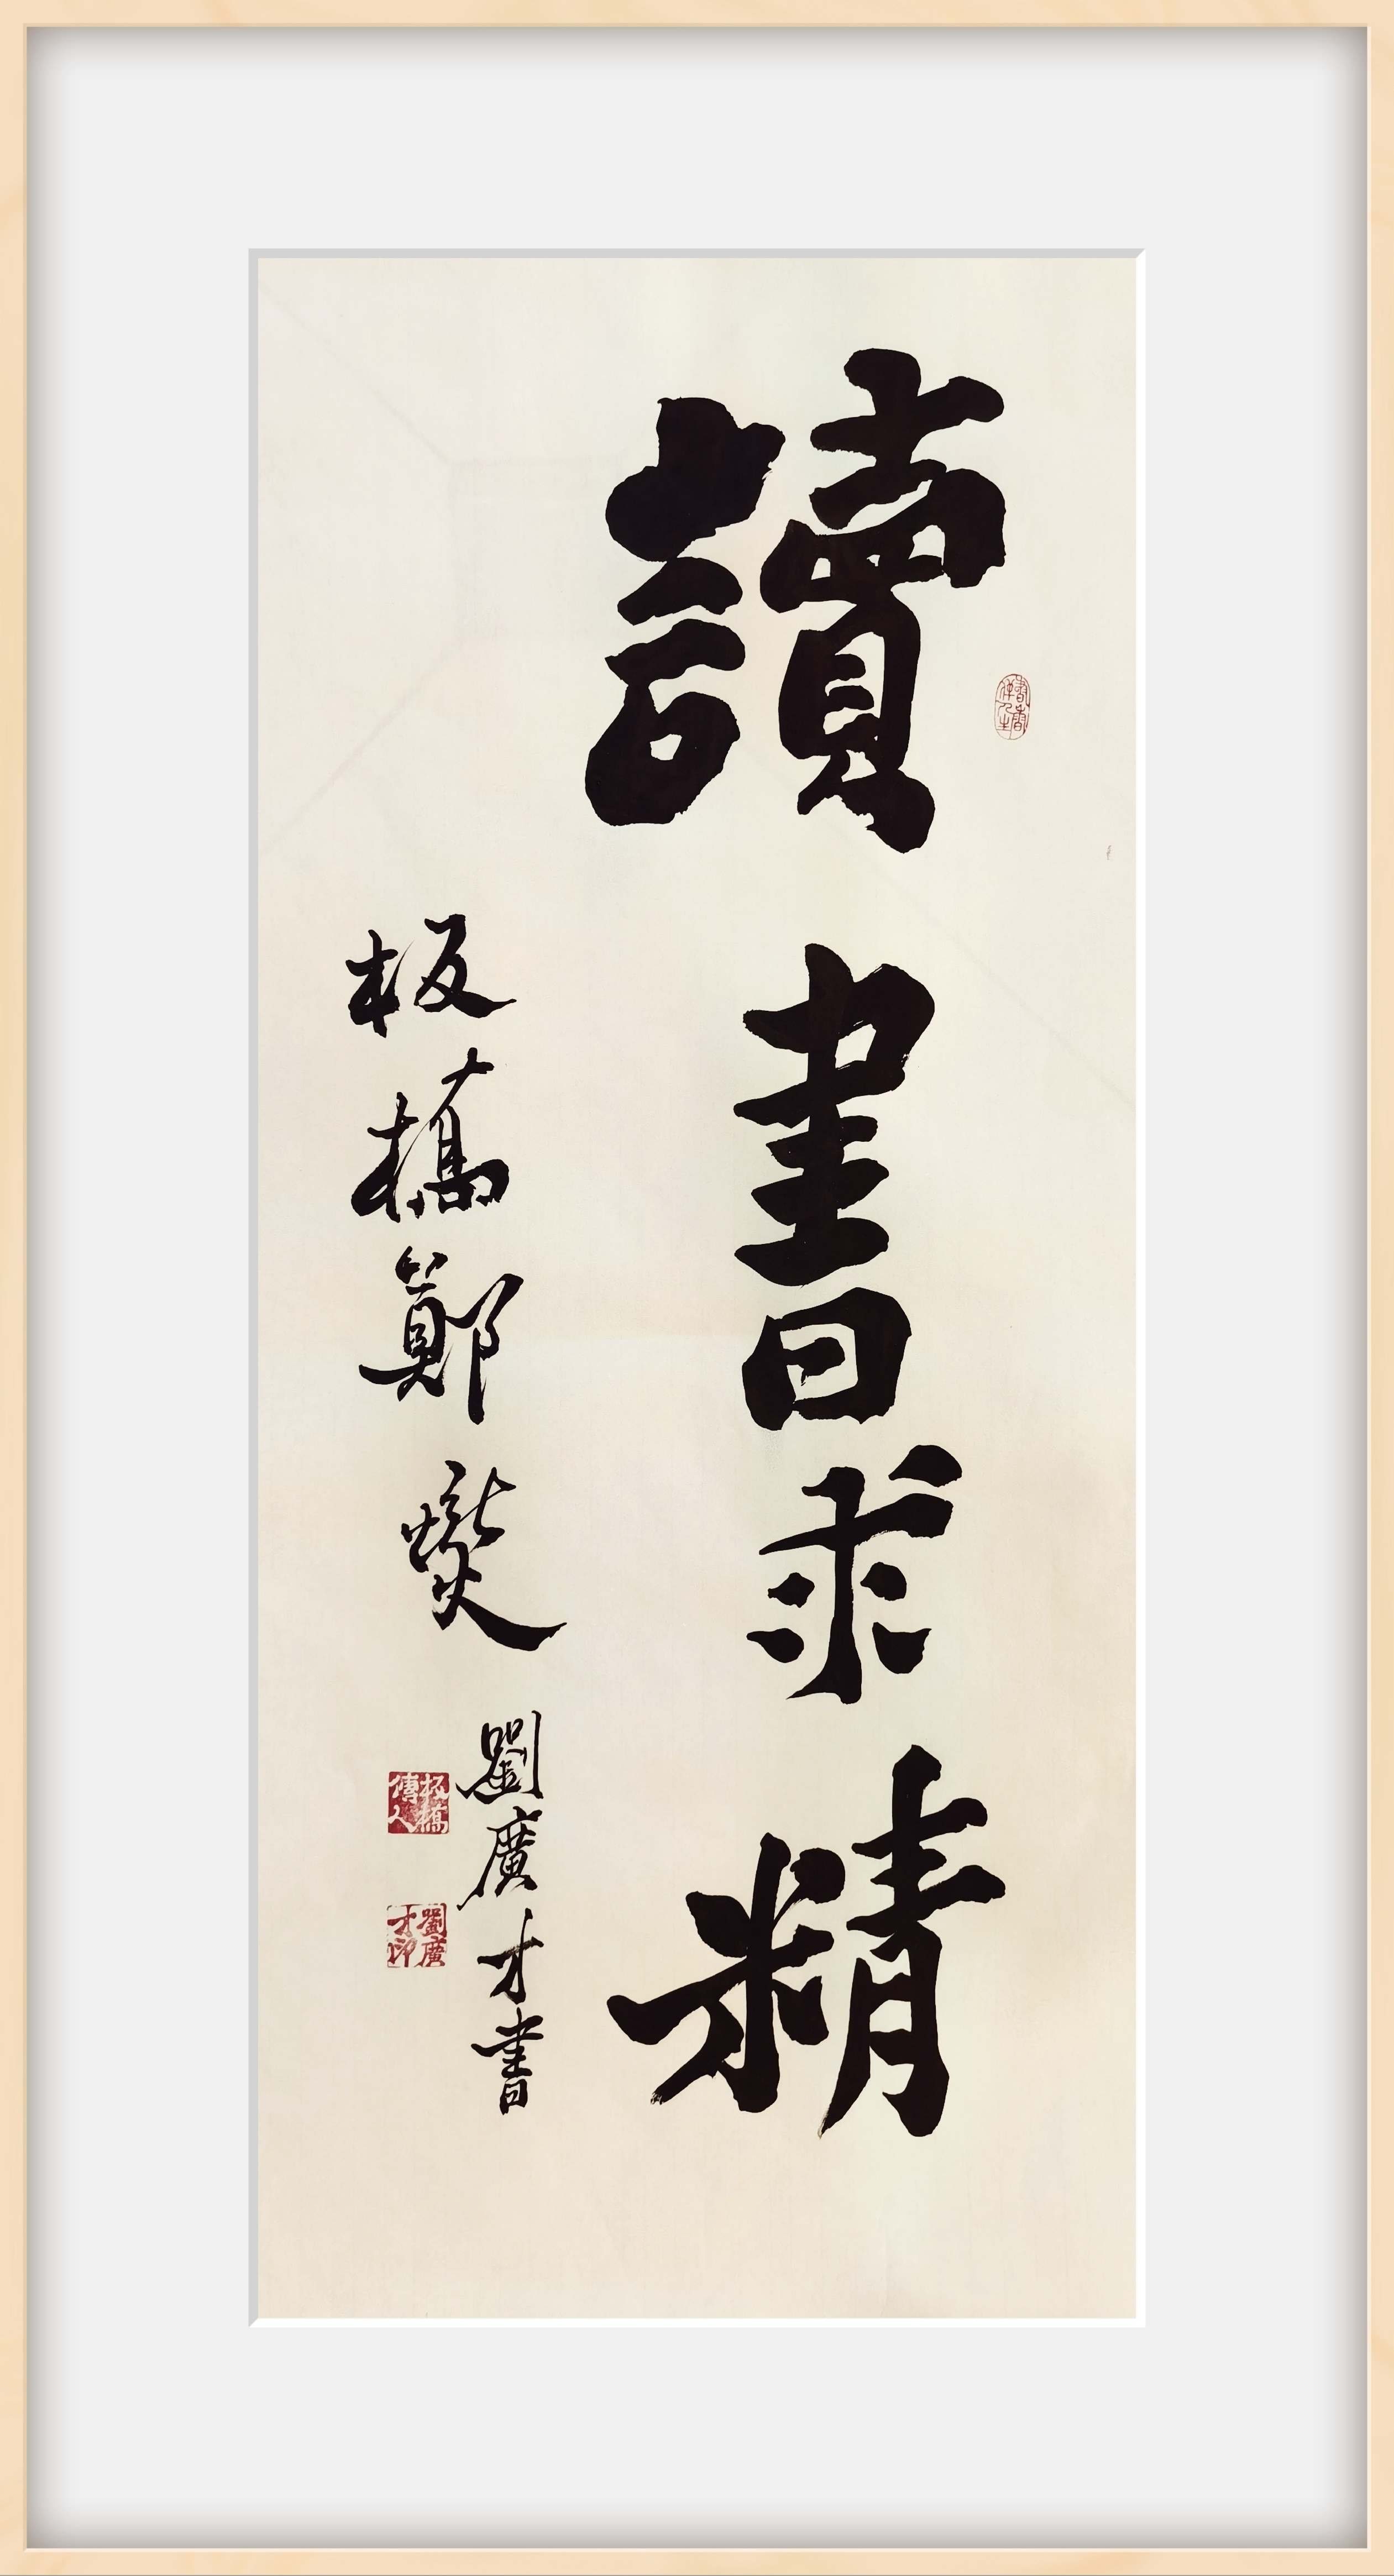 讀書求精
板橋鄭燮
劉廣才書
書香伴人生
板橋傳人
劉廣才印